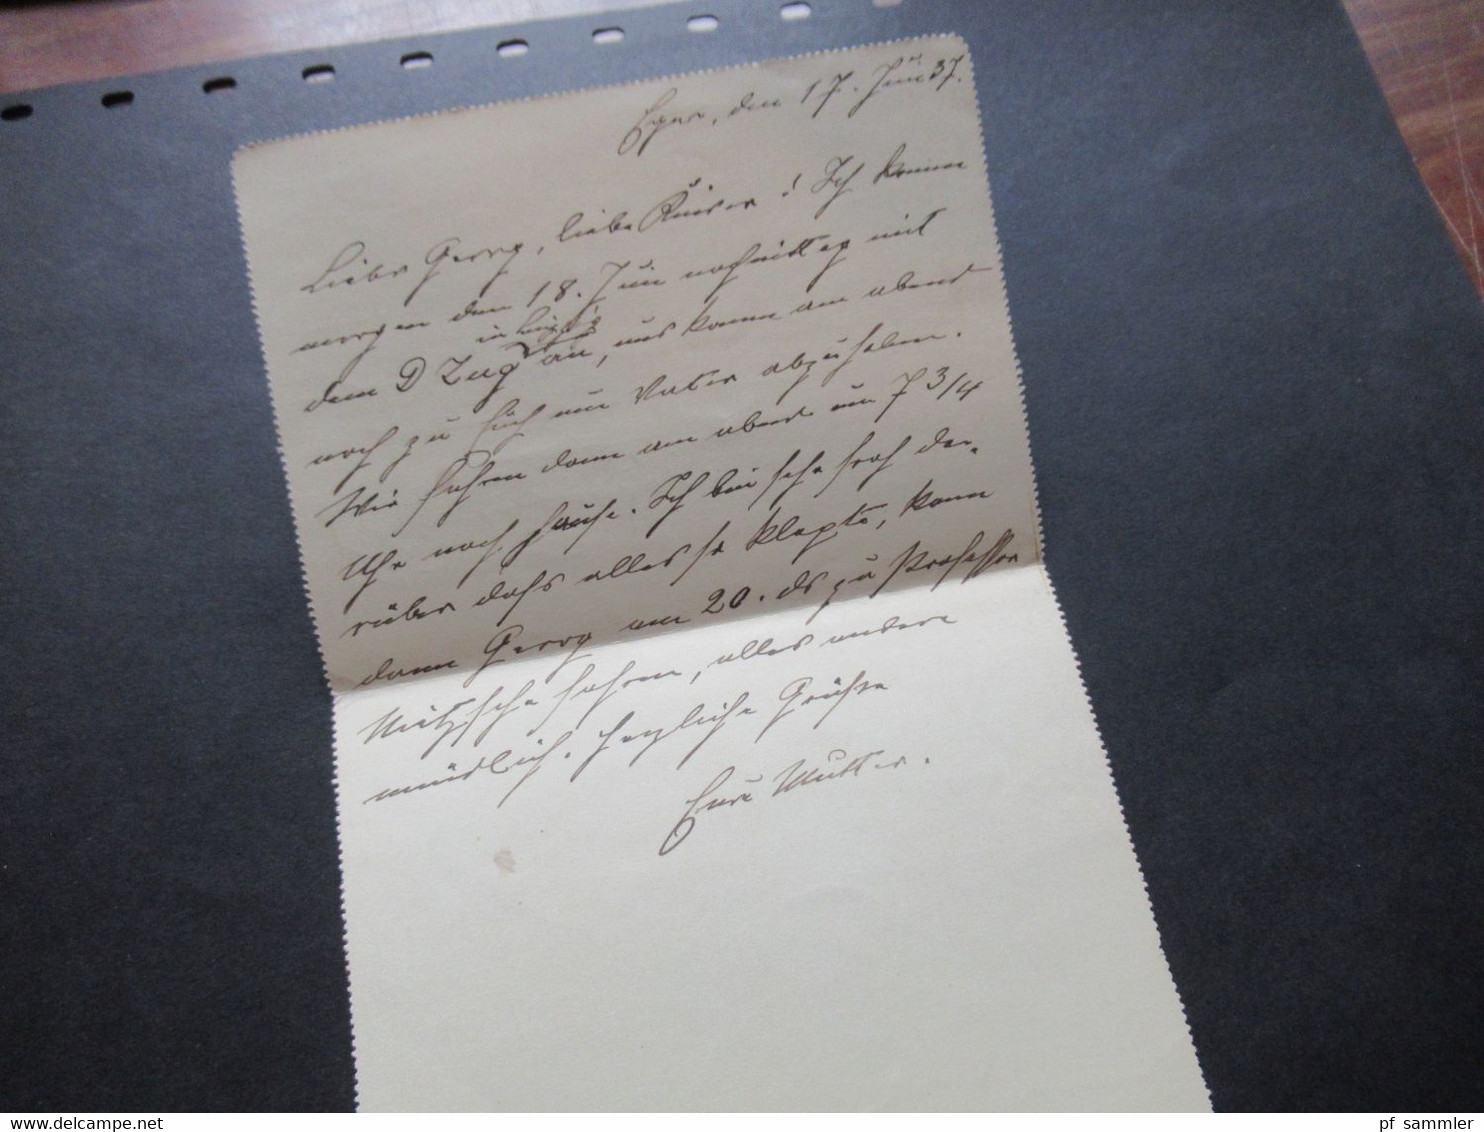 Eger, den 17. Juni 37.
Lieber Georg, liebe Kinder! Ich komme
morgen den 18. Juni nachmittag mit
in Leipzig
dem D Zug an, und komme am abend
noch zu Euch um Vater abzuholen.
Wir fahren dann am abend um 7 3/4
Uhr nach hause. Ich bin sehr froh da-
rüber daß alles so klapte, kann
dann Georg am 20. ds zu Professor
Nitzsche fahren, alles andere
mündlich. Herzliche Grüße
Eure Mutter.
pf_sammler
delcampe.net